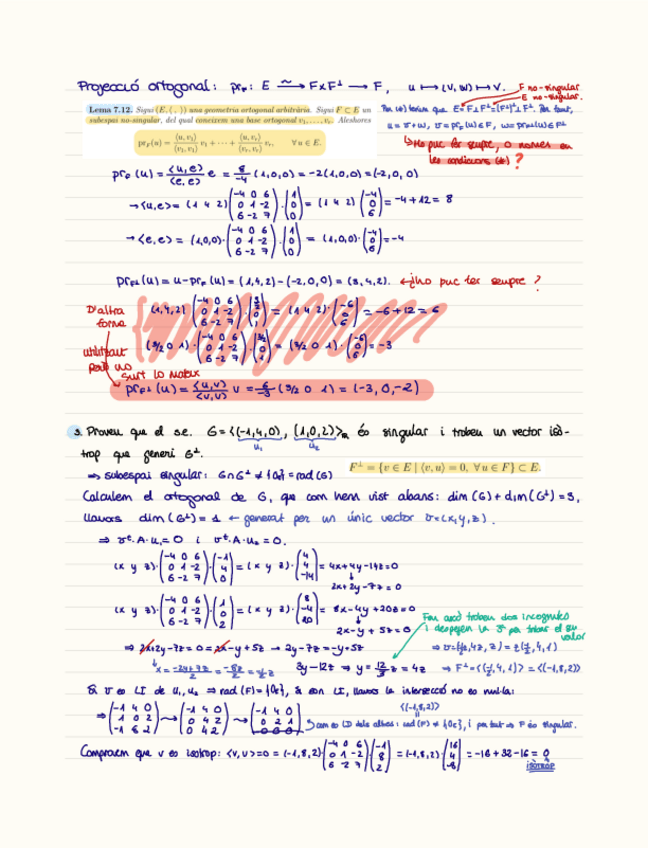 Projecció ortogonal: prF: E ⥲ F×F⊥ → F, u ↦ (v, w) ↦ v.
F no-singular
E no-singular.
Lema 7.12. Sigui (E, ⟨ , ⟩) una geometria ortogonal arbitrària. Sigui F ⊂ E un
subespai no-singular, del qual coneixem una base ortogonal v1, . . . , vr. Aleshores
prF(u) = ⟨u, v1⟩/⟨v1, v1⟩ v1 + · · · + ⟨u, vr⟩/⟨vr, vr⟩ vr, ∀ u ∈ E.
Per (*) tenim que E = F⊥F⊥ = (F⊥)⊥⊥F⊥. Per tant,
u = v + w, v = prF(u) ∈ F, w = prF⊥(u) ∈ F⊥
↳ Ho puc fer sempre, o només en
les condicions (*) ?
prF(u) = <u,e>/<e,e> e = 8/-4 (1,0,0) = -2(1,0,0) = (-2,0,0)
→ <u,e> = (1 4 2) (-4 0 6 / 0 1 -2 / 6 -2 7) · (1 / 0 / 0) = (1 4 2) (-4 / 0 / 6) = -4+12 = 8
→ <e,e> = (1,0,0) · (-4 0 6 / 0 1 -2 / 6 -2 7) · (1 / 0 / 0) = (1,0,0) · (-4 / 0 / 6) = -4
prF⊥(u) = u - prF(u) = (1,4,2) - (-2,0,0) = (3,4,2). ← ¿ho puc fer sempre ?
D'altra
forma
(1,4,2) (-4 0 6 / 0 1 -2 / 6 -2 7) · (3/2 / 0 / 1) = (1 4 2) · (-6 / 0 / 6) = -6+12 = 6
utilitzant
(3/2 0 1) · (-4 0 6 / 0 1 -2 / 6 -2 7) · (3/2 / 0 / 1) = (3/2 0 1) · (-6 / 0 / 6) = -3
però no
surt lo mateix
prF⊥(u) = <u,v>/<v,v> v = 6/-3 (3/2 0 1) = (-3, 0, -2)
3. Proveu que el s.e. G = <(-1,4,0), (1,0,2)>ℝ és singular i trobeu un vector isò-
u1 u2
trop que generi G⊥.
⇒ subespai singular: G∩G⊥ ≠ {0E} = rad(G)
F⊥ = {v ∈ E | ⟨v, u⟩ = 0, ∀ u ∈ F} ⊂ E.
Calculem el ortogonal de G, que com hem vist abans: dim(G) + dim(G⊥) = 3,
llavors dim(G⊥) = 1 ← generat per un únic vector v = (x,y,z).
⇒ vt·A·u1 = 0 i vt·A·u2 = 0.
(x y z) · (-4 0 6 / 0 1 -2 / 6 -2 7) · (-1 / 4 / 0) = (x y z) · (4 / 4 / -14) = 4x+4y-14z=0
2x+2y-7z=0
(x y z) · (-4 0 6 / 0 1 -2 / 6 -2 7) · (1 / 0 / 2) = (x y z) · (8 / -4 / 20) = 8x-4y+20z=0
2x-y+5z=0
Fem això trobem dos incògnites
i despejem la 3ª per trobar el seu
valor
⇒ 2x+2y-7z=0=2x-y+5z → 2y-7z=-y+5z ⇒ v=(-½z,4z,z)=z(-½,4,1)
x = -2y+7z/2 = -½z 3y-12z ⇒ y = 12/3 z = 4z ⇒ F⊥ = <(-½,4,1)> = <(-1,8,2)>
Si v és LI de u1,u2 ⇒ rad(F) = {0E}, si són LI, llavors la intersecció no és nul·la:
<(-1,8,2)>
⇒ (-1 4 0 / 1 0 2 / -1 8 2) ⤳ (-1 4 0 / 0 4 2 / 0 4 2) ⤳ (-1 4 0 / 0 2 1 / 0 0 0) com és LD dels altres: rad(F) ≠ {0E}, i per tant ⇒ F és singular.
Comprovem que v és isòtrop: <v,v>=0 = (-1,8,2) · (-4 0 6 / 0 1 -2 / 6 -2 7) (-1 / 8 / 2) = (-1,8,2) · (16 / 4 / -8) = -16+32-16 = 0
isòtrop